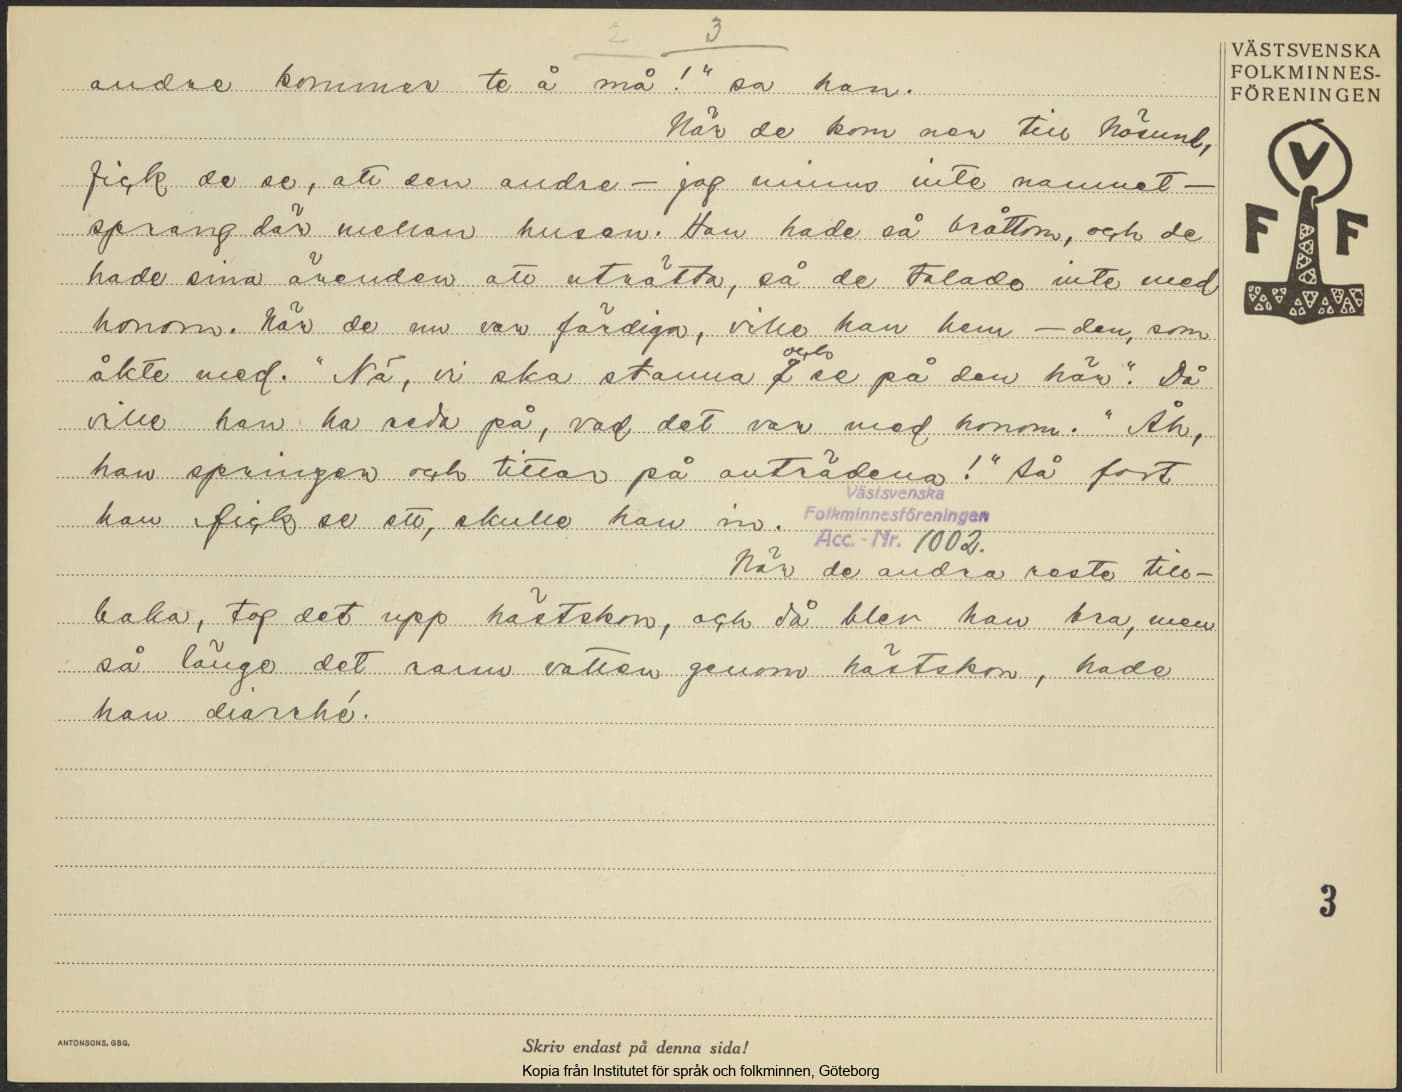 2 3
VÄSTSVENSKA
FOLKMINNES-
FÖRENINGEN
V
F F
andre kommer te å må!" sa han.
När de kom ner till Nösund,
fick de se, att den andre — jag minns inte namnet —
sprang där mellan husen. Han hade så bråttom, och de
hade sina ärenden att uträtta, så de talade inte med
honom. När de nu var färdiga, ville han hem — den, som
åkte med. "Nä, vi ska stanna och se på den här". Då
ville han ha reda på, vad det var med honom. "Åh,
han springer och tittar på avträdena!" Så fort
han fick se ett, skulle han in.
Västsvenska
Folkminnesföreningen
Acc. - Nr. 1002.
När de andra reste till-
baka, tog det upp hästskon, och då blev han bra, men
så länge det rann vatten genom hästskon, hade
han diarrhé.
3
ANTONSONS, GBG.
Skriv endast på denna sida!
Kopia från Institutet för språk och folkminnen, Göteborg